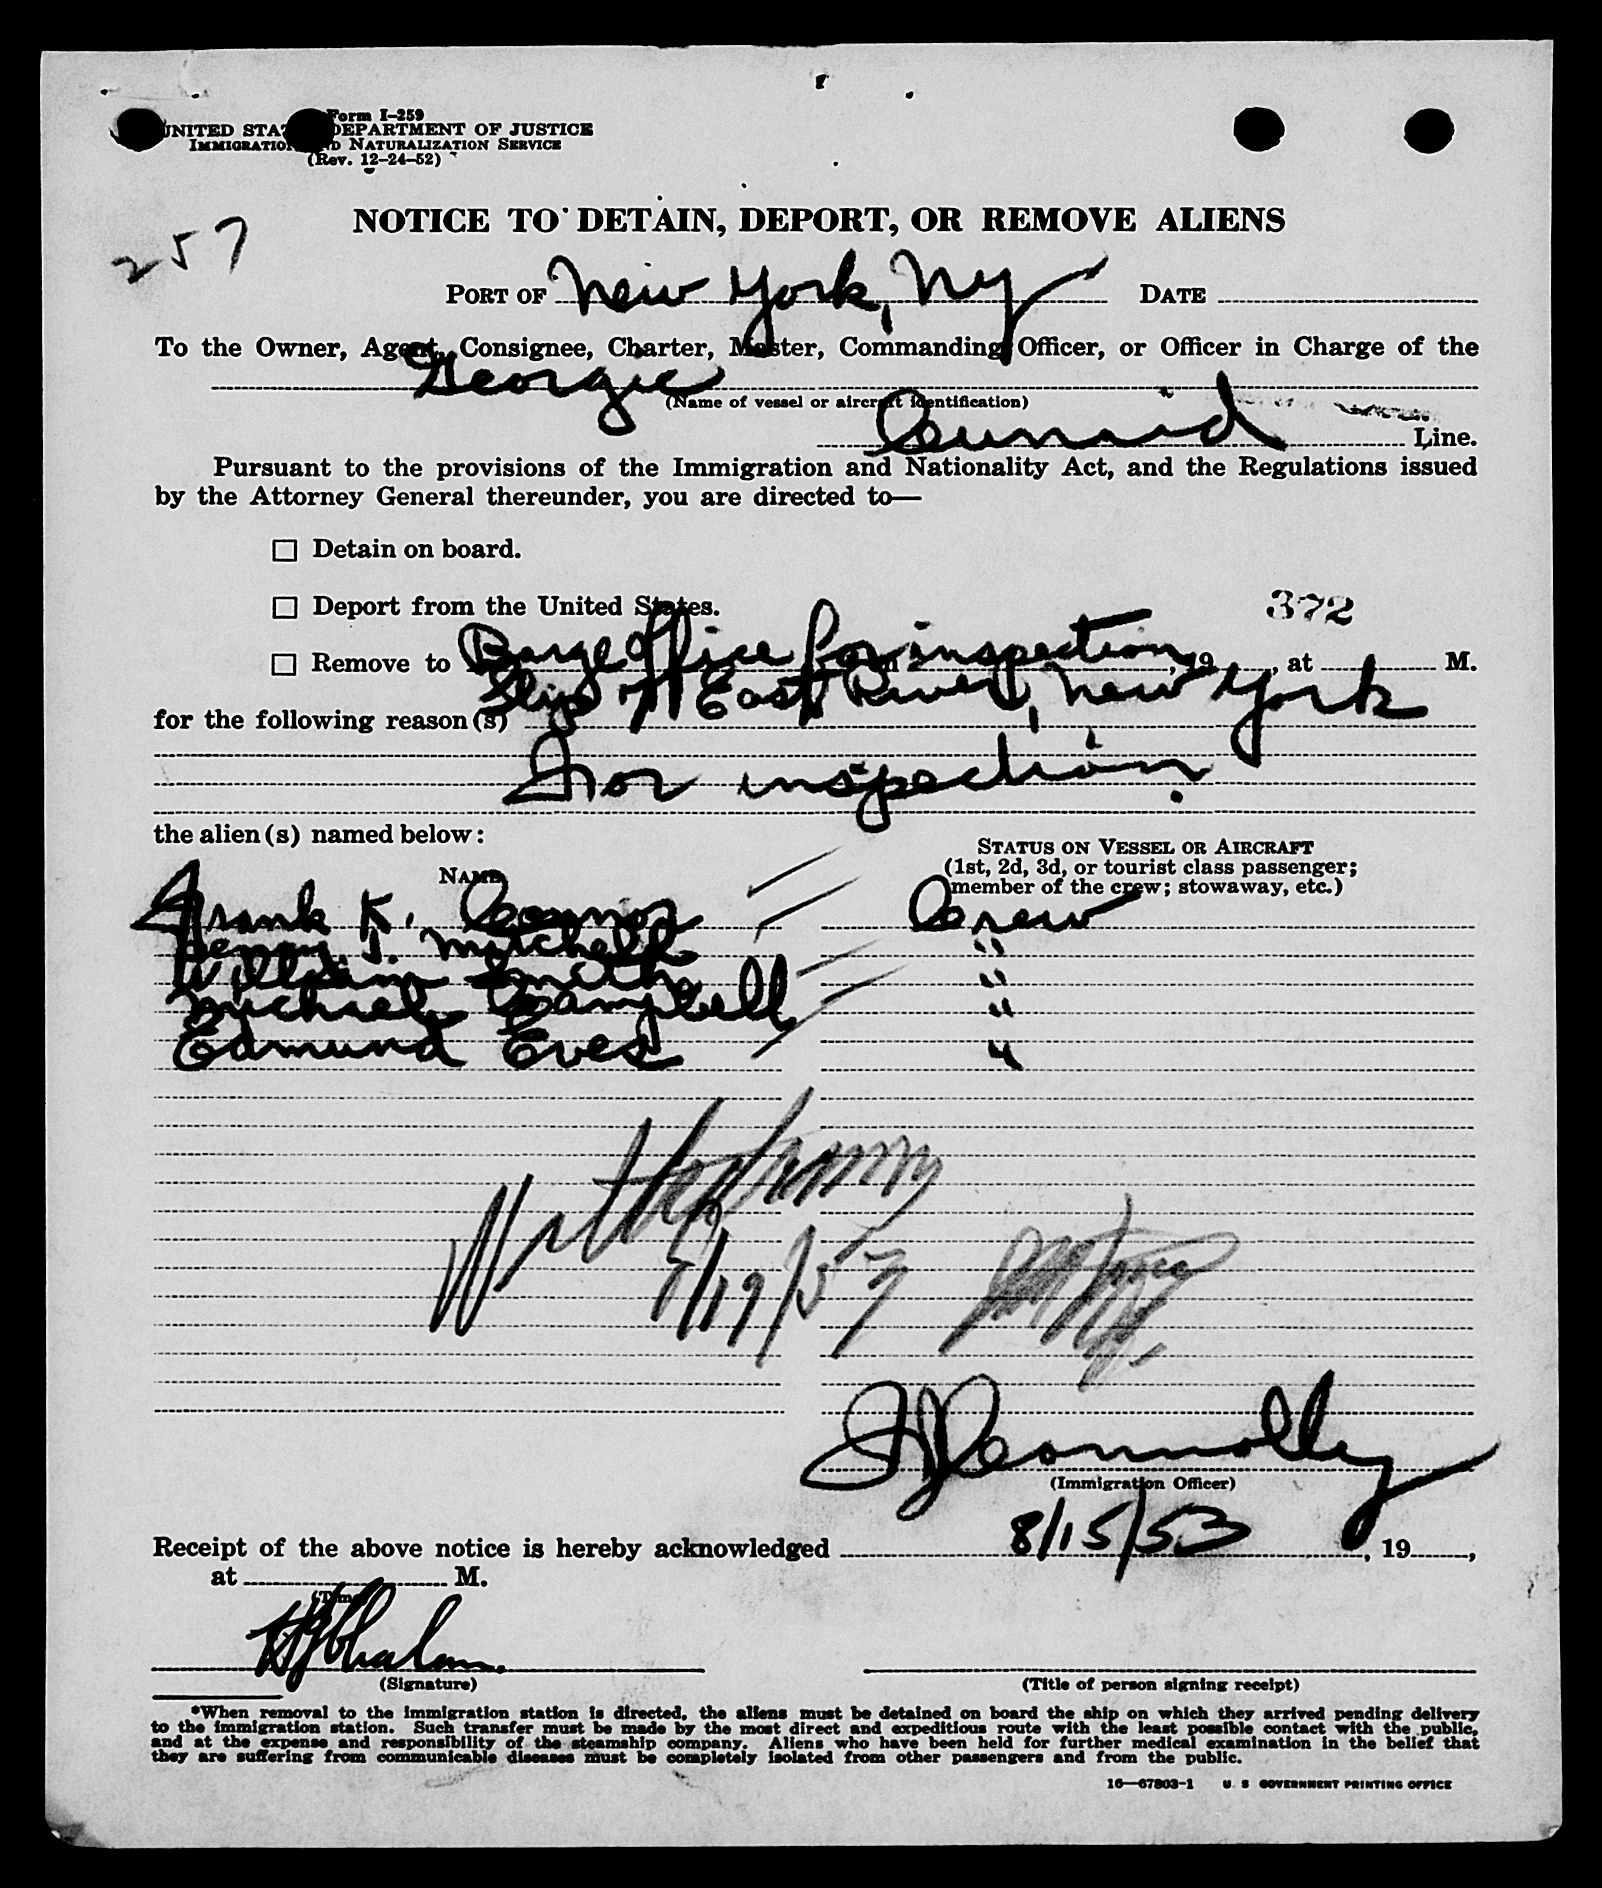 Form I-259
UNITED STA DEPARTMENT OF JUSTICE
IMMIGRATIO D NATURALIZATION SERVICE
(Rev. 12-24-52)
257
NOTICE TO DETAIN, DEPORT, OR REMOVE ALIENS
PORT OF New York, NY DATE
To the Owner, Agent, Consignee, Charter, Master, Commanding Officer, or Officer in Charge of the
Georgic
(Name of vessel or aircraft identification)
Cunard Line.
Pursuant to the provisions of the Immigration and Nationality Act, and the Regulations issued
by the Attorney General thereunder, you are directed to—
☐ Detain on board.
☐ Deport from the United States.
372
☐ Remove to Barge Office for inspection, 19, at M.
Slip 7 East River, New York
for the following reason(s)
For inspection.
the alien(s) named below:
STATUS ON VESSEL OR AIRCRAFT
(1st, 2d, 3d, or tourist class passenger;
member of the crew; stowaway, etc.)
NAME
Frank K. Connor Crew
Henry J. Mitchell "
William Smith "
Michael Campbell "
Edmund Eves "
8/19/53
J J Connolly
(Immigration Officer)
Receipt of the above notice is hereby acknowledged 8/15/53, 19,
at M.
(Time)
(Signature)
(Title of person signing receipt)
*When removal to the immigration station is directed, the aliens must be detained on board the ship on which they arrived pending delivery
to the immigration station. Such transfer must be made by the most direct and expeditious route with the least possible contact with the public,
and at the expense and responsibility of the steamship company. Aliens who have been held for further medical examination in the belief that
they are suffering from communicable diseases must be completely isolated from other passengers and from the public.
16—67803-1 U. S. GOVERNMENT PRINTING OFFICE